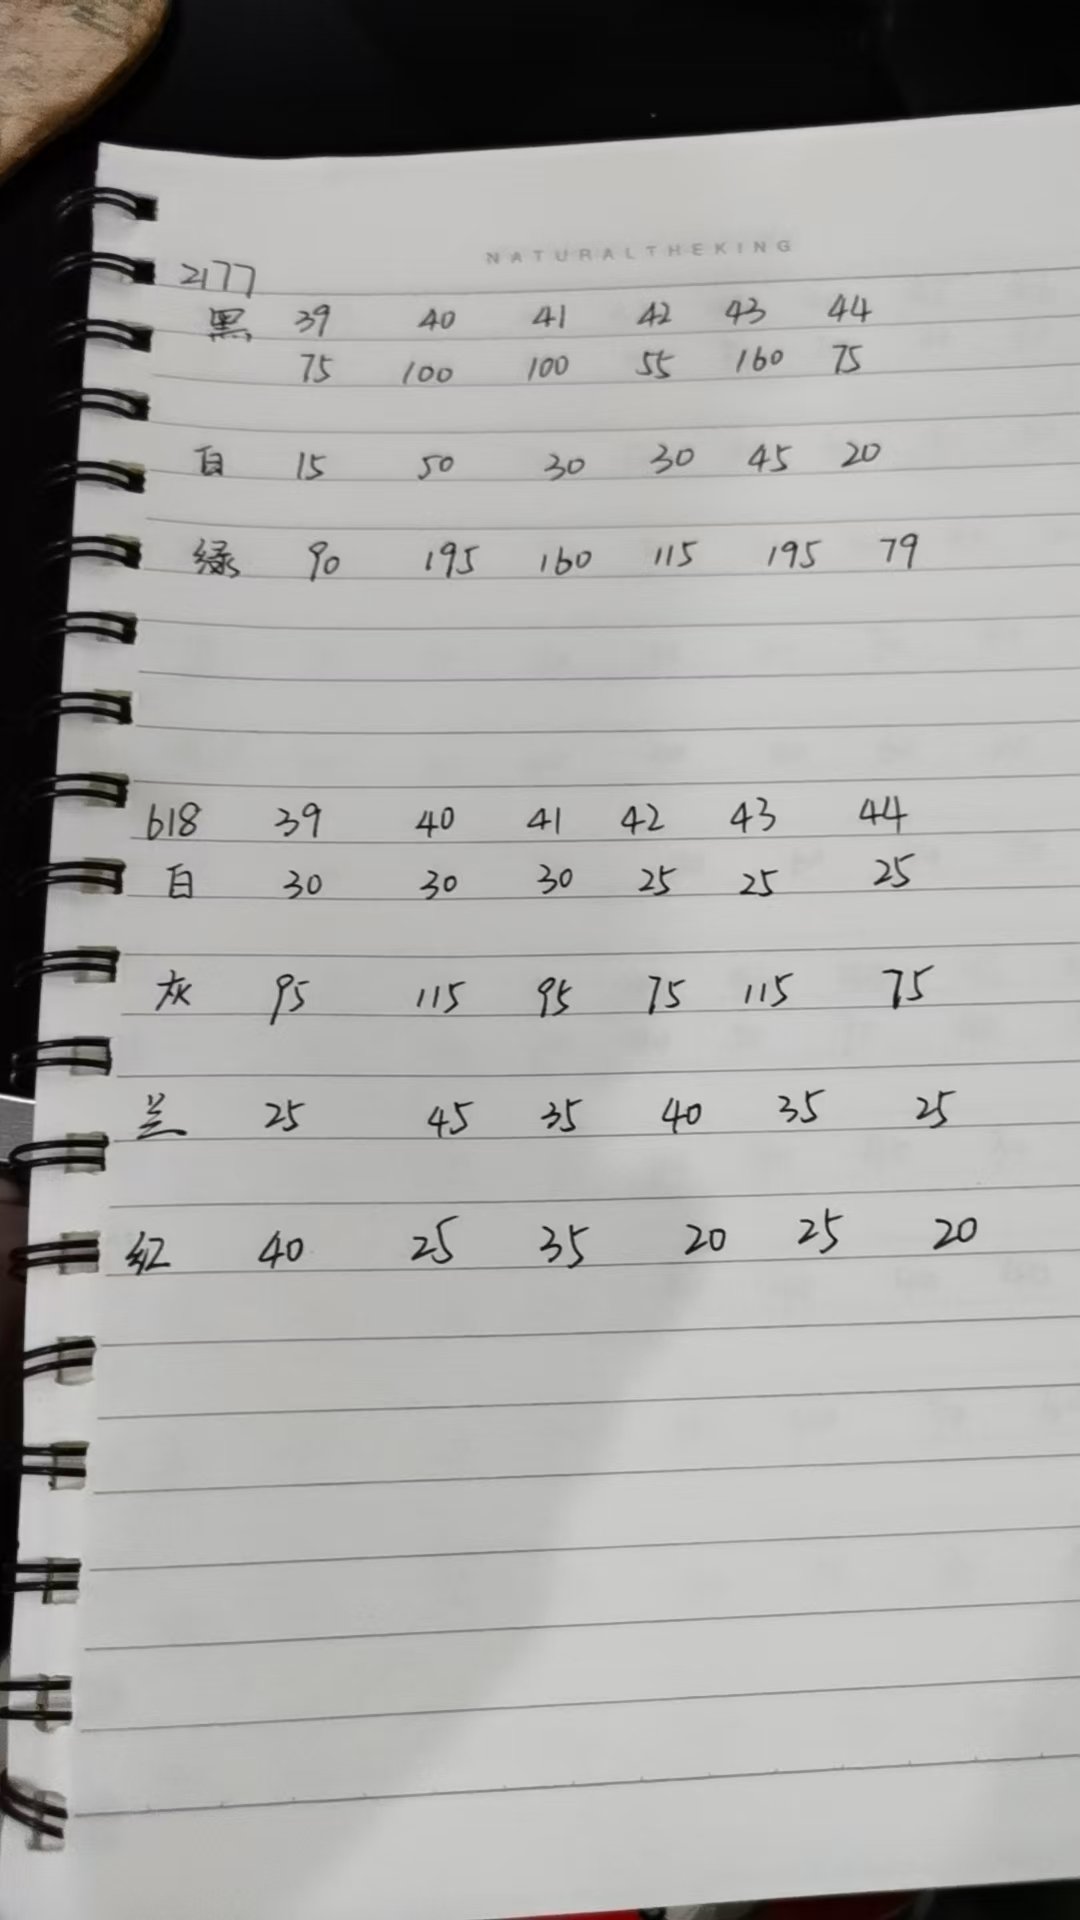 NATURALTHEKING
2177
黑 39 40 41 42 43 44
75 100 100 55 160 75
白 15 50 30 30 45 20
绿 90 195 160 115 195 79
618 39 40 41 42 43 44
白 30 30 30 25 25 25
灰 95 115 95 75 115 75
兰 25 45 35 40 35 25
红 40 25 35 20 25 20